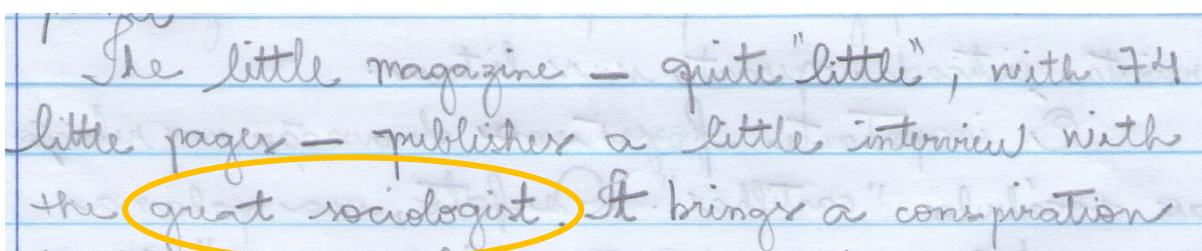 The little magazine — quite "little", with 74
little pages — publishes a little interview with
the great sociologist. It brings a conspiration